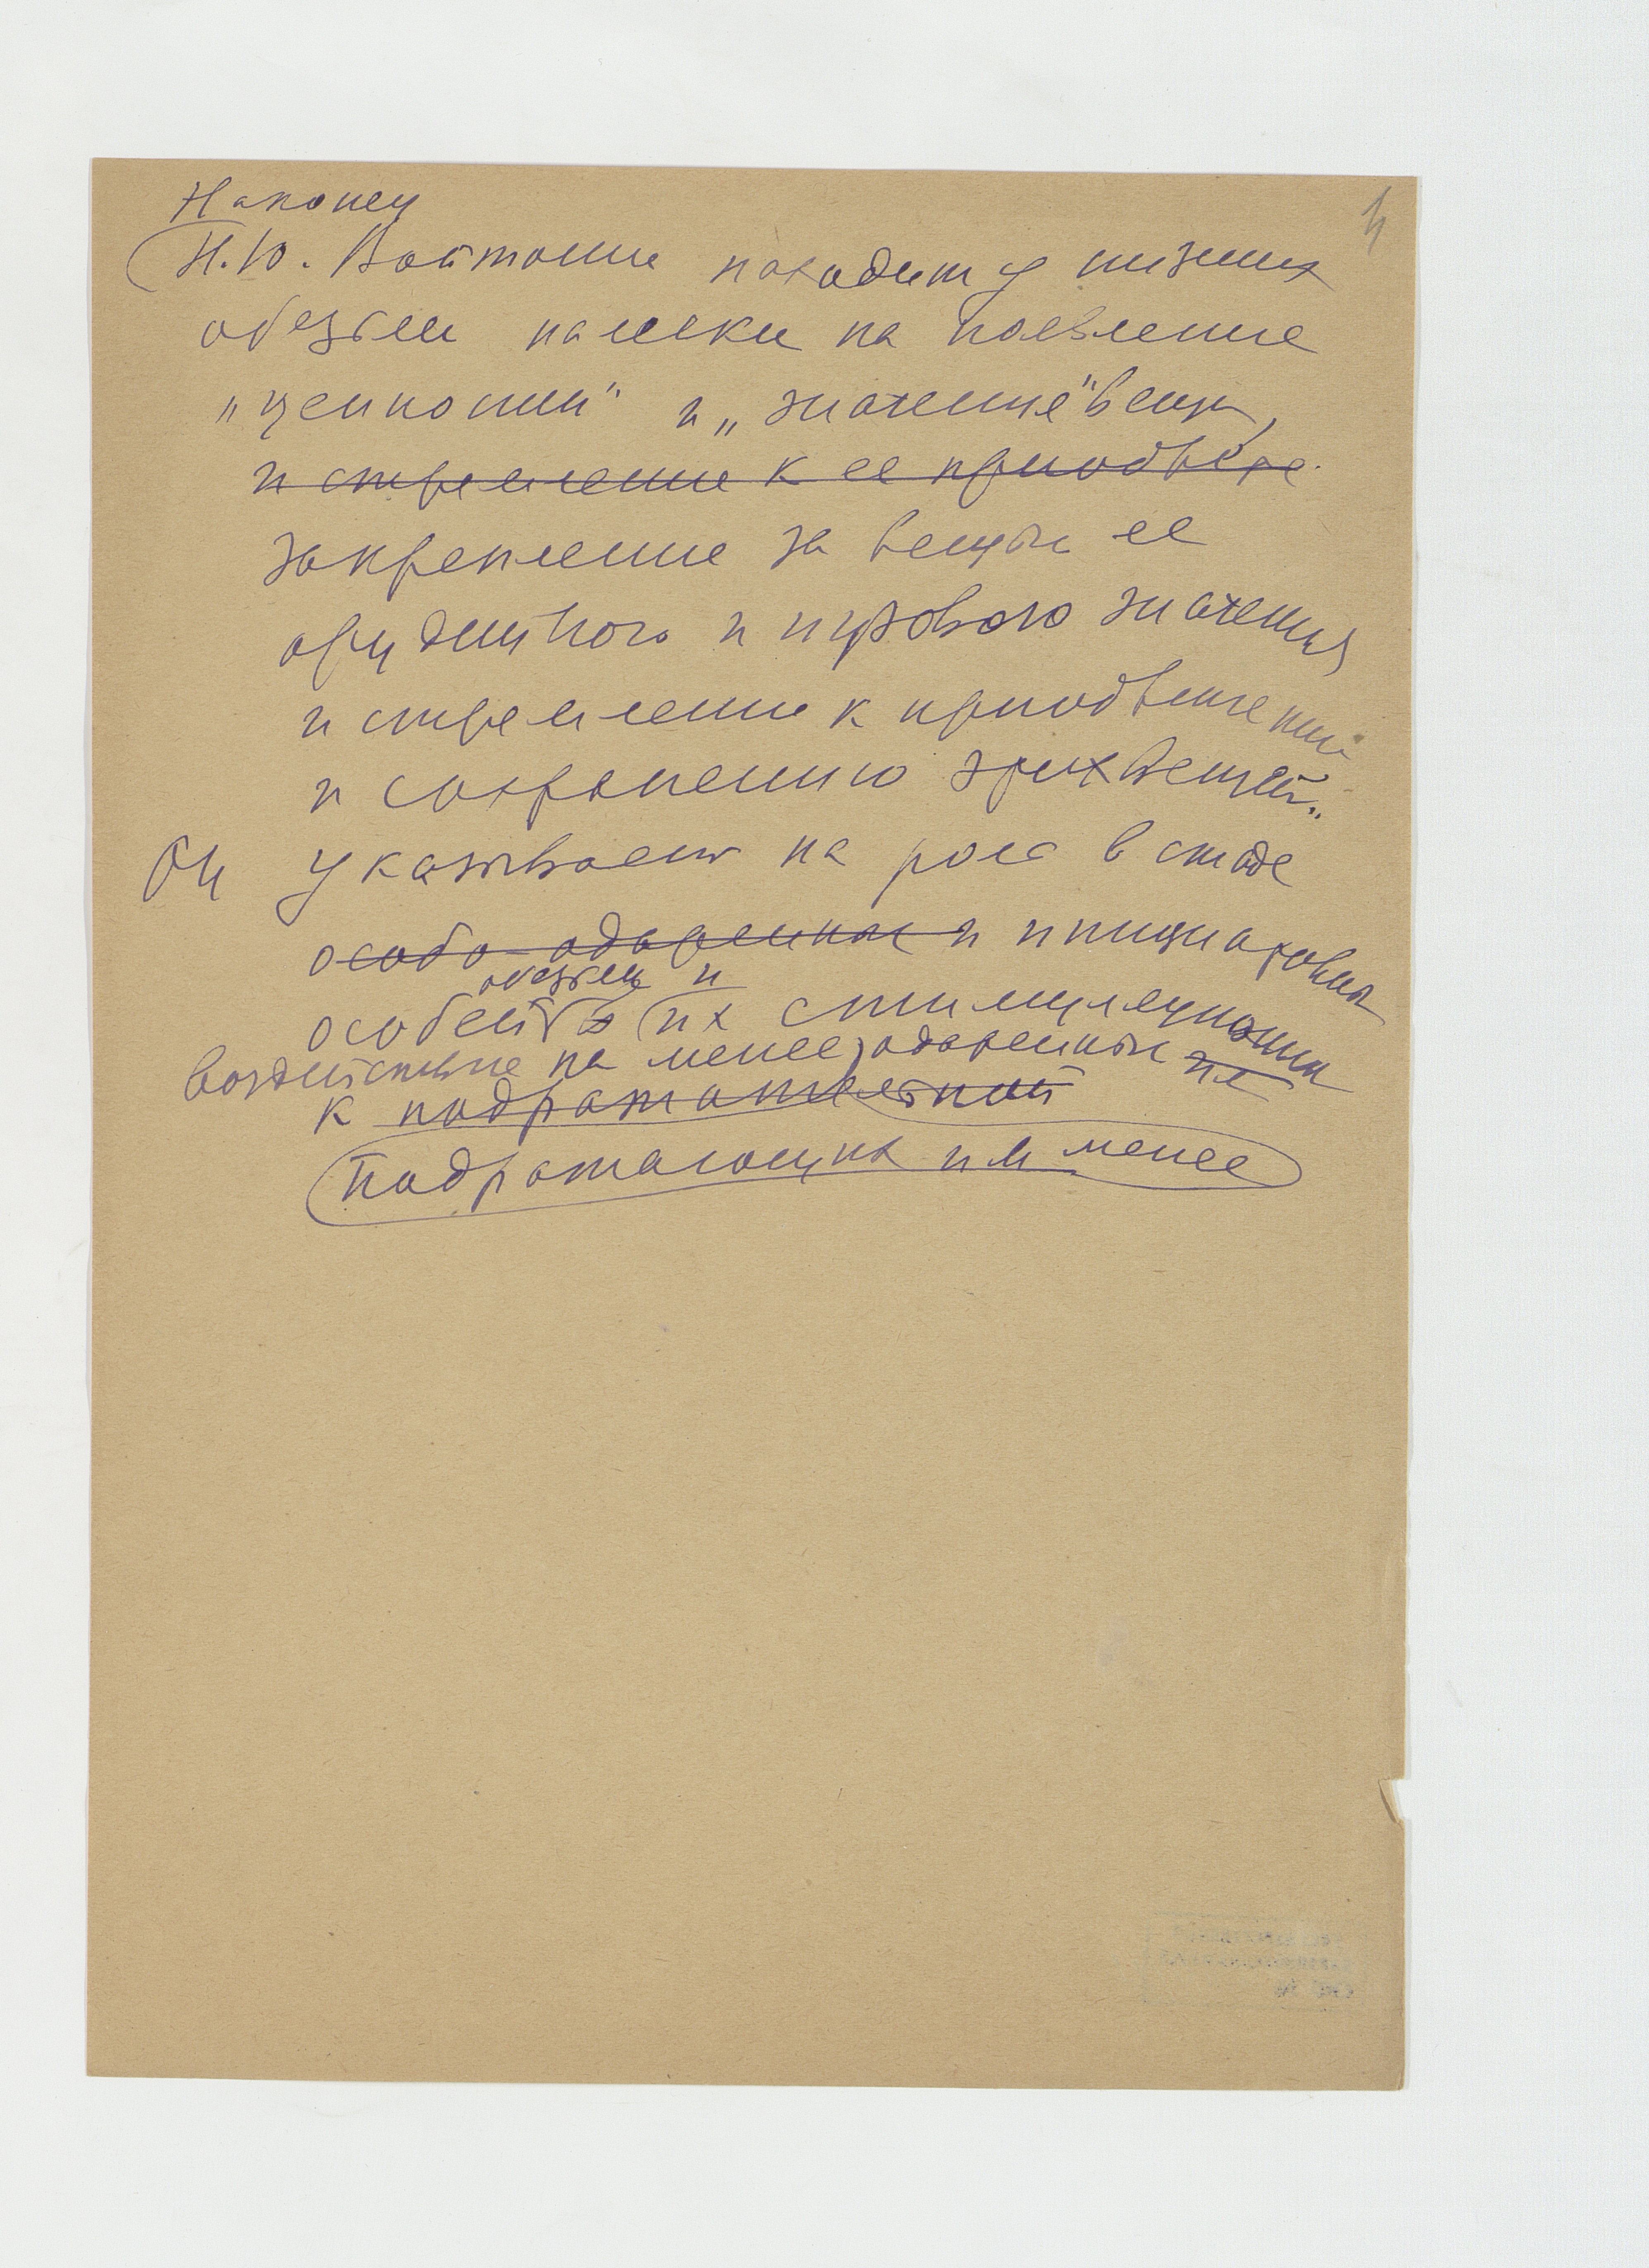 4
Наконец
Н.Ю. Войтонис находит у низших
обезьян намеки на появление
„ценности" и „значения" вещи,
и стремление к ее приобрете.
закрепление за вещью ее
орудийного и игрового значения
и стремлении к приобретению
и сохранению этих вещей.
Он указывает на роль в стаде
особо одаренных и инициативных
обезьян и
особей в их стимуляционном
воздействие на менее одаренных не
к подражательной
подражающих им менее